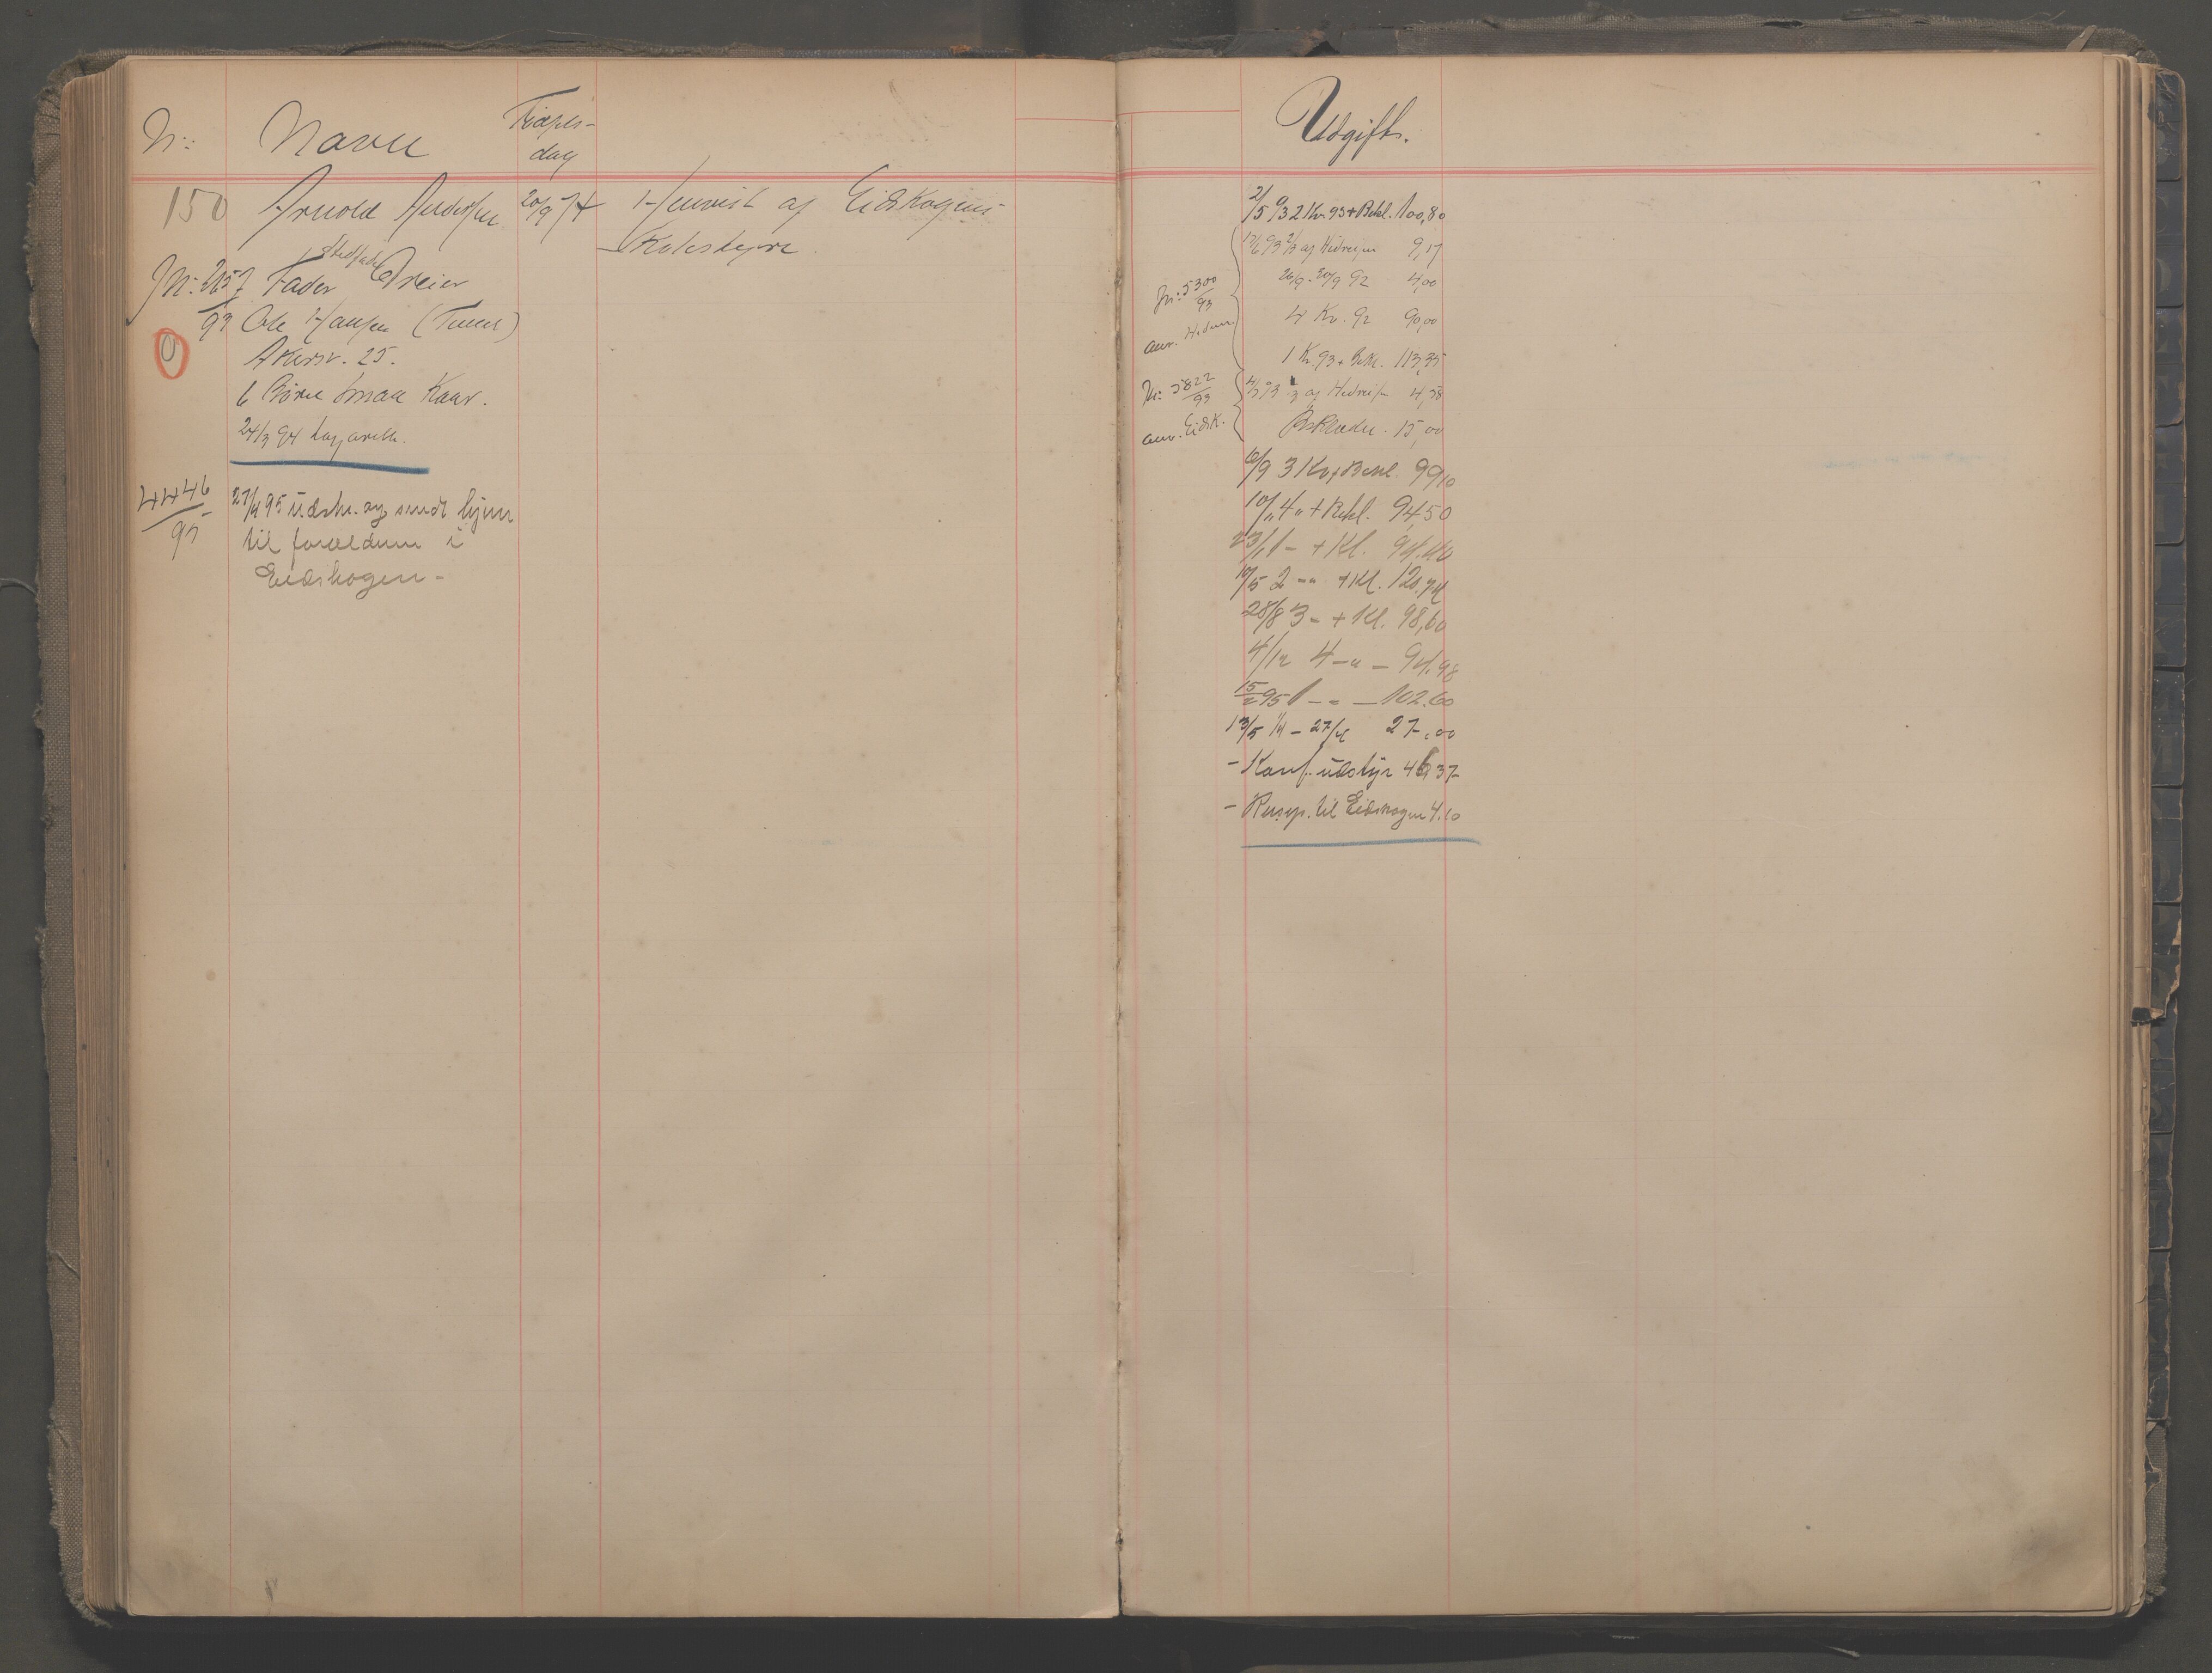 Nr: Navn Fødsels-
dag
150 Arnold Andersen 20/9 74 Henvist af Eidskogens
Skolestyre
Stedfader
Jn: 2657/93 Fader Dreier
Ole Hansen (Tunet)
0
Akersv. 25.
6 Børn smaa Kaar.
24/3 94 Lazareth.
4446/95 27/4 95 udskr. og sendt hjem
til forældrene i
Eidskogen -
Udgift.
2/5 93 2 Kv. 93 + Bekl. 100,80
Jn: 5300/93
anv. Hedm.
17/6 93 2/3 af Hidreisen 9,17
26/9 - 30/9 92 4,00
4 Kv. 92 90,00
1 Kv. 93 + Bekl. 113,35
Jn: 5822/93
anv. Eidsk.
4/7 93 1/3 af Hidreisen 4,58
Beklæder. 15,00
16/9 3 Kv + Bekl. 99,10
10/11 4 " + Bekl. 94,50
23/1 1 - + Kl. 94.40
10/5 2 -"- + Kl. 120.74
28/8 3 - + Kl. 98,60
4/12 4 -"- - 94.98
15/2 95 1 -"- - 102.60
13/5 1/4 - 27/4 27.00
- Konf. udstyr 46 37
- Reisep. til Eidskogen 4.10